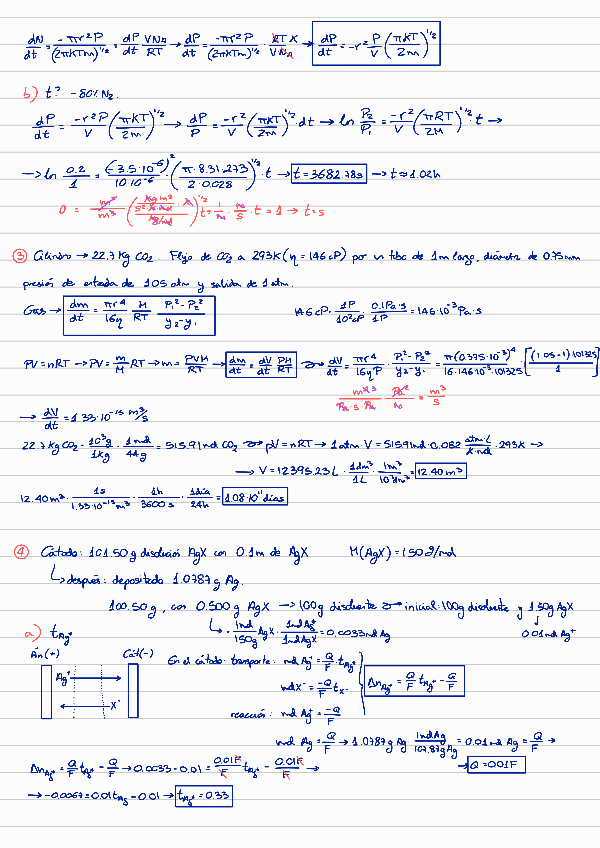 dN/dt = -πr²P/(2πKTm)^1/2 = dP/dt VNA/RT → dP/dt = -πr²P/(2πKTm)^1/2 · RTK/VNA → dP/dt = -r² P/V (πKT/2m)^1/2
b) t? -80% N₂.
dP/dt = -r²P/V (πKT/2m)^1/2 → dP/P = -r²/V (πKT/2m)^1/2 · dt → ln P₂/P₁ = -r²/V (πRT/2M)^1/2 · t →
→ ln 0.2/1 = (-3.5·10⁻⁶)²/10·10⁻⁶ · (π·8.31·273/2·0.028)^1/2 · t → t = 3682.78s → t ≈ 1.02h
③ Cilindro → 22.7 Kg CO₂. Flujo de CO₂ a 293K (η = 146 cP) por un tubo de 1m largo, diámetro de 0.75mm
presión de entrada de 1.05 atm y salida de 1 atm.
Gas → dm/dt = πr⁴/16η M/RT P₁²-P₂²/y₂-y₁
146 cP · 1P/10²cP · 0.1Pa·s/1P = 146·10⁻³ Pa·s
PV = nRT → PV = m/M RT → m = PVM/RT → dm/dt = dV/dt PM/RT → dV/dt = πr⁴/16ηP · P₁²-P₂²/y₂-y₁ = π(0.375·10⁻³)⁴/16·146·10⁻³·101325 · [((1.05-1)·101325)/1]
m⁴/Pa·s·Pa · Pa²/m = m³/s
→ dV/dt = 1.33·10⁻¹⁵ m³/s
22.7 Kg CO₂ · 10³g/1kg · 1mol/44g = 515.91 mol CO₂ → pV = nRT → 1 atm · V = 515.91 mol · 0.082 atm·L/K·mol · 293K →
→ V = 12395.23L · 1dm³/1L · 1m³/10³dm³ = 12.40 m³
12.40 m³ · 1s/1.33·10⁻¹⁵m³ · 1h/3600s · 1día/24h = 1.08·10¹¹ días
④ Cátodo: 101.50 g disolución AgX con 0.1m de AgX M(AgX) = 150 g/mol
↳ después: depositado 1.0787 g Ag.
100.50 g, con 0.500 g AgX → 100g disolvente → inicial: 100g disolvente y 1.50g AgX
↳ · 1mol/150g AgX · 1mol Ag⁺/1mol AgX = 0.0033 mol Ag
↓ 0.01 mol Ag⁺
a) t Ag⁺
Án(+) Cát(-)
Ag⁺
X⁻
En el cátodo: transporte: mol Ag⁺ = Q/F · t Ag⁺
mol X⁻ = -Q/F t X⁻
reacción: mol Ag⁺ = -Q/F
Δn Ag⁺ = Q/F t Ag⁺ - Q/F
mol Ag = Q/F → 1.0787 g Ag 1mol Ag/107.87g Ag = 0.01 mol Ag = Q/F →
→ Q = 0.01F
Δn Ag⁺ = Q/F t Ag⁺ - Q/F → 0.0033 - 0.01 = 0.01F/F t Ag⁺ - 0.01F/F →
→ -0.0067 = 0.01 t Ag - 0.01 → t Ag⁺ = 0.33